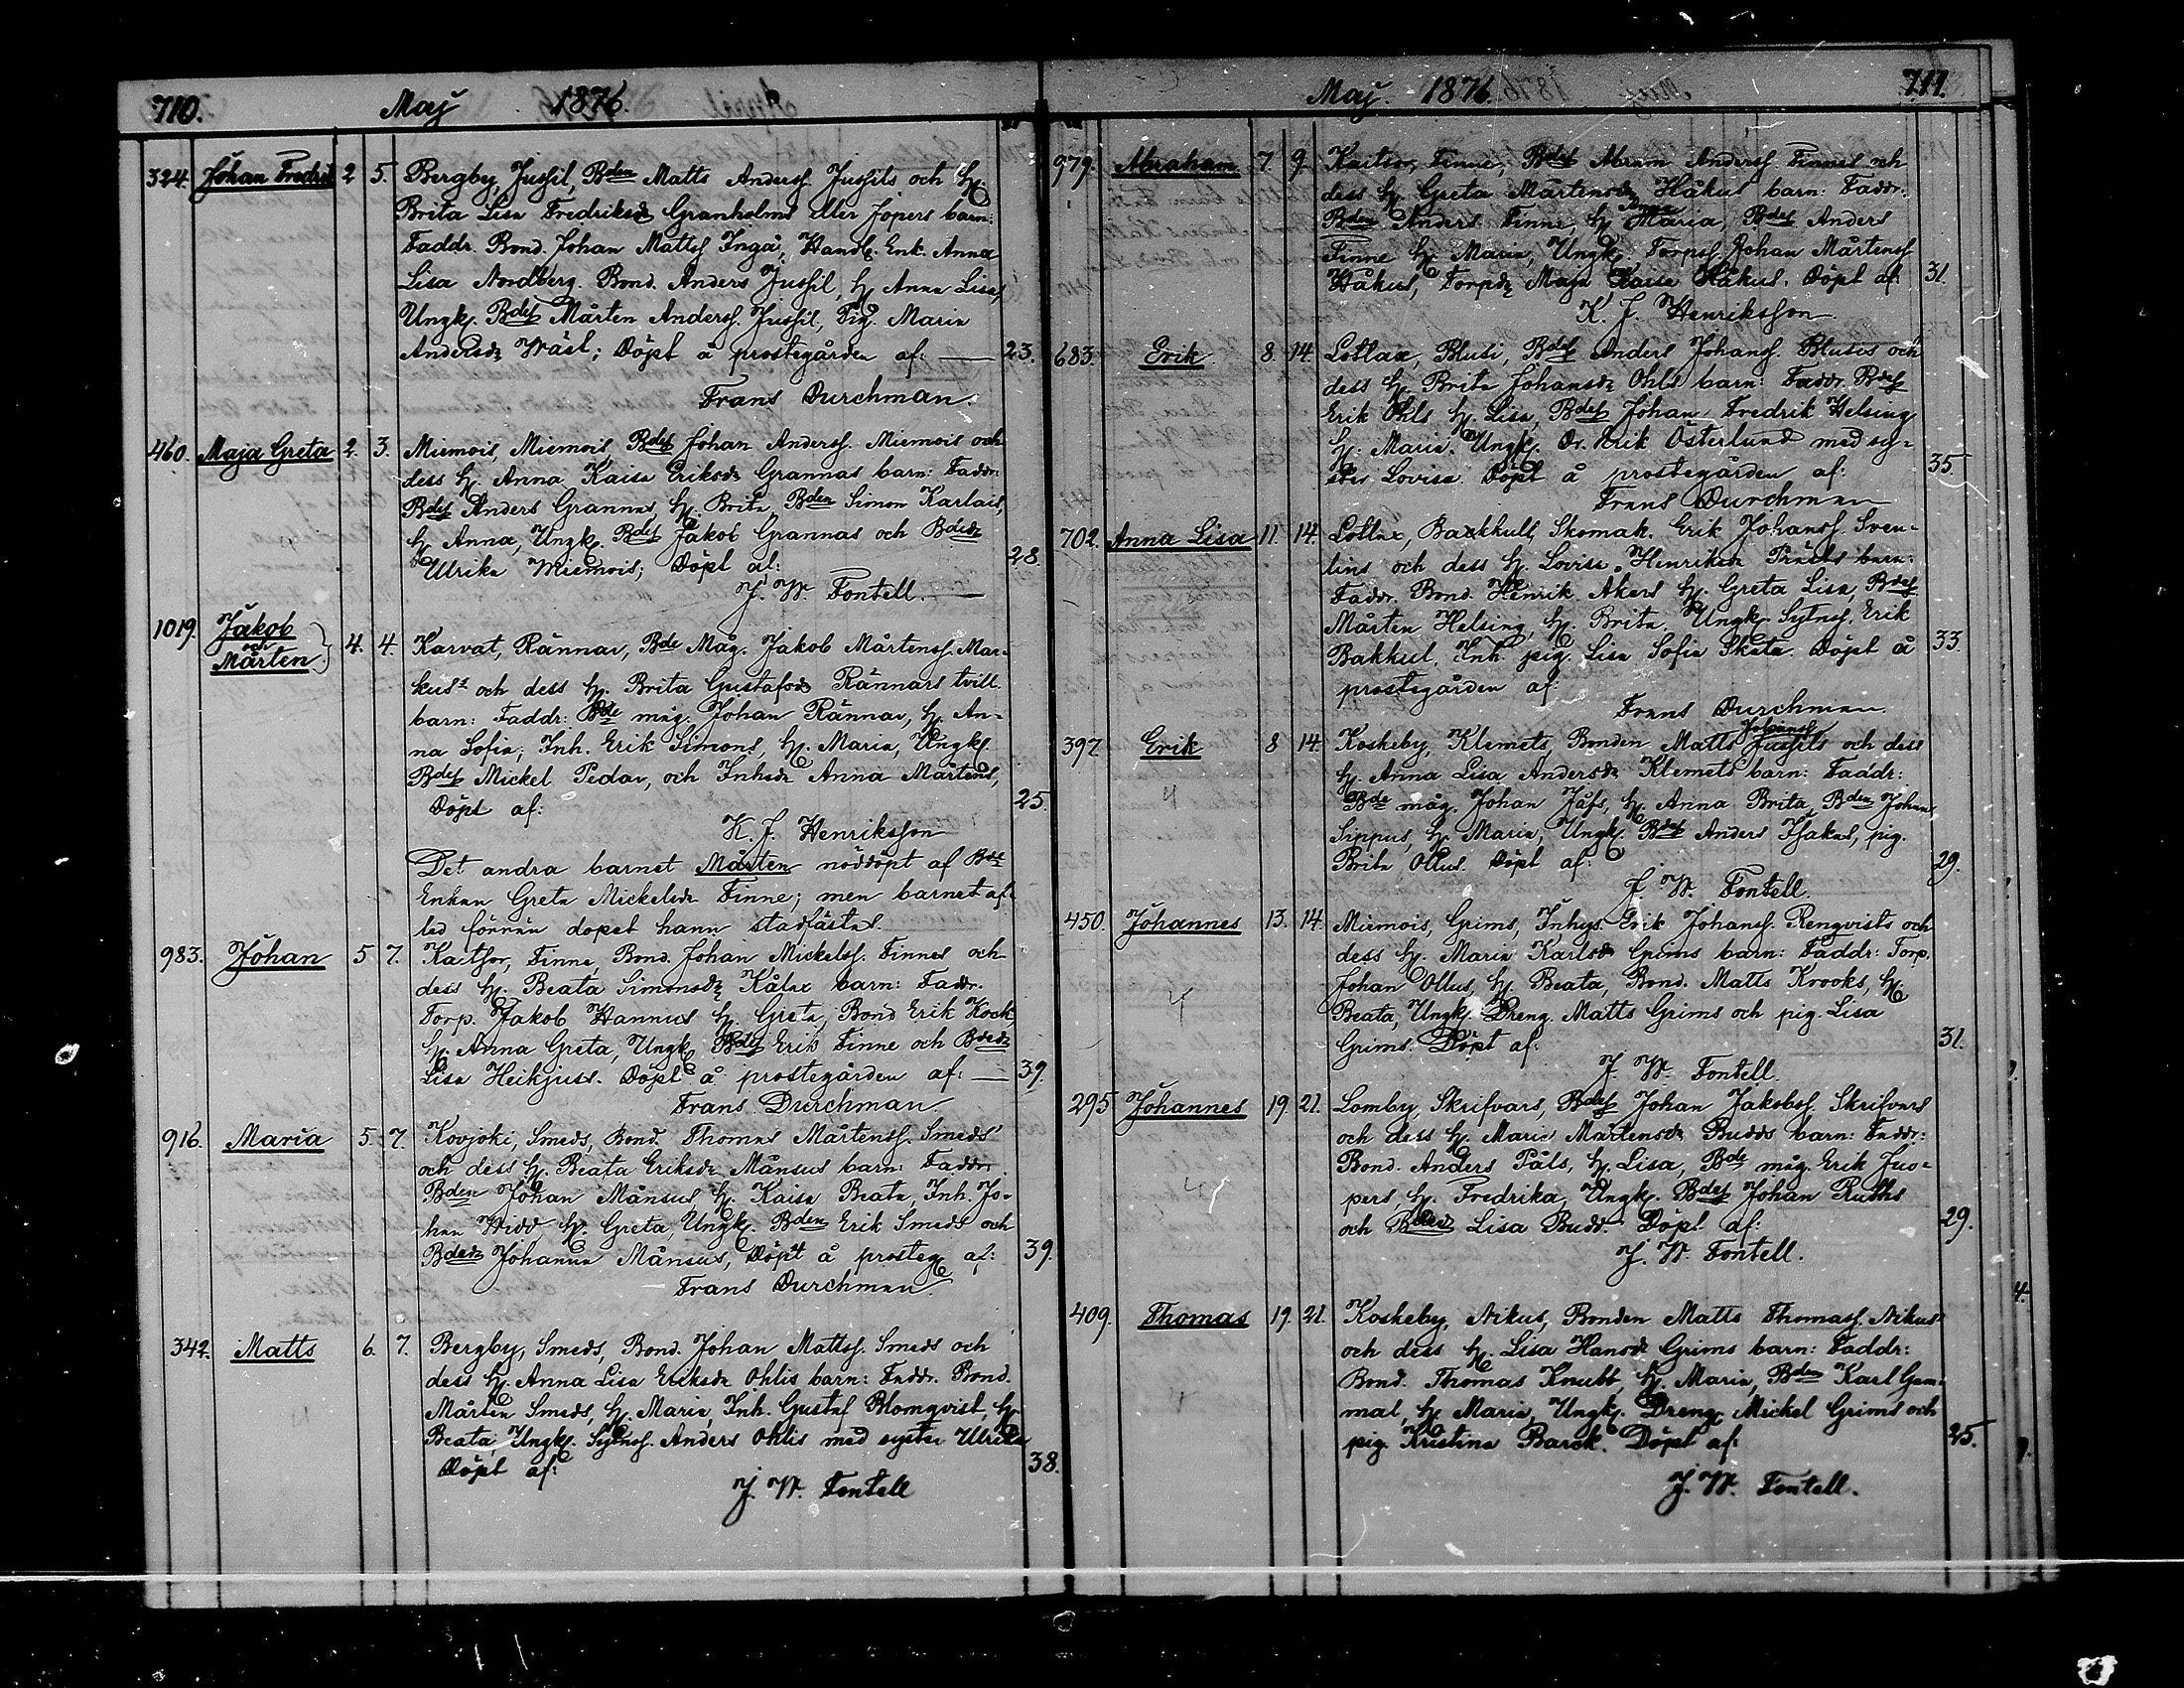 710. Maj 1876.
324. Johan Fredrik 2 5. Bergby, Jussil, Bden Matts Anderss. Jussils och Hu.
Brita Lisa Fredriksdr Granholms eller Jopers barn:
Faddr. Bond. Johan Mattss Ingå, Handl. Enk. Anna
Lisa Nordberg. Bond. Anders Jussil, Hu Anna Lisa,
Ungk. Bdes Mårten Anderss. Jussil, Pig. Maria
Andersdr Wäst; Döpt å prostegården af: — 23.
Frans Durchman.
460. Maja Greta 2. 3. Miemois, Miemois, Bdes Johan Anderss. Miemois och
dess Hu. Anna Kaisa Eriksdr Grannas barn: Faddr:
Bdes Anders Grannas, Hu. Brita, Bden Simon Karlais,
Hu Anna, Ungk. Bdes Jakob Grannas och Bdesdr
Ulrika Miemois; Döpt af: 28.
J. W. Fontell. —
1019. Jakob
och
Mårten 4. 4. Karvat, Rännar, Bde Måg. Jakob Mårtenss. Mar-
kus och dess Hu. Brita Gustafsdr Rännars tvill.
barn: Faddr: Bde måg. Johan Rännar, Hu. An-
na Sofia; Inh. Erik Simons, Hu. Maria, Ungk.
Bdes Mickel Pedar, och Inhsdr Anna Mårtens,
Döpt af: 25.
K. J. Henriksson
Det andra barnet Mårten nöddöpt af Bde
Enkan Greta Mickelsdr Finne; men barnet af-
led förrän dopet hann stadfästas.
983. Johan 5 7. Kaitsor, Finne, Bond. Johan Mickelss. Finnes och
dess Hu. Beata Simonsdr Kålax barn: Faddr.
Torp. Jakob Hannus Hu Greta, Bond Erik Kock,
Hu. Anna Greta, Ungk Bdes Erik Finne och Bdesdr
Lisa Heikjus. Döpt å prostegården af: — 39.
Frans Durchman.
916. Maria 5. 7. Kovjoki, Smeds, Bond. Thomas Mårtenss. Smeds
och dess Hu. Beata Eriksdr Månsus barn: Faddr.
Bden Johan Månsus Hu. Kaisa Beata, Inh. Jo-
han Widd Hu. Greta, Ungk. Bden Erik Smeds och
Bdesdr Johanna Månsus, Döpt å prosteg af: 39.
Frans Durchman.
342. Matts 6. 7. Bergby, Smeds, Bond. Johan Mattss. Smeds och
dess Hu. Anna Lisa Eriksdr Ohlis barn: Faddr. Bond.
Mårten Smeds, Hu. Maria, Inh. Gustaf Blomqvist, Hu.
Beata, Ungk. Sytnss. Anders Ohlis med syster Ulrika
Döpt af: 38.
J. W. Fontell
Maj. 1876. 711.
979. Abraham 7 9. Kaitsor, Finne, Bdes Abram Anderss. Finnes och
dess Hu. Greta Mårtensdr Håkus barn: Faddr.
Bden Anders Finne, Hu Maria, Bdes Anders
Finne Hu. Maria, Ungk. Torpss. Johan Mårtenss
Håkus, Torpdr Maja Kaisa Håkus. Döpt af: 31.
K. J. Henriksson
683. Erik 8. 14. Lotlax, Blusi, Bdes Anders Johanss. Blusis och
dess Hu. Brita Johansdr Ohls barn: Faddr. Bdes
Erik Ohls Hu. Lisa, Bdes Johan Fredrik Helsing
Hu. Maria. Ungk. Dr. Erik Österlund med sy-
ster Lovisa Döpt å prostegården af: 35
Frans Durchman
702. Anna Lisa 11. 14. Lotlax, Bakkhull, Skomak. Erik Johanss. Sven-
lins och dess Hu. Lovisa Henriksdr Präels barn:
Faddr. Bond. Henrik Akers Hu. Greta Lisa, Bdes
Mårten Helsing, Hu. Brita. Ungk. Sytnss. Erik
Bakkul. Inh. pig. Lisa Sofia Skata. Döpt å 33.
prostegården af:
Frans Durchman.
397. Erik 8 14. Koskeby, Klemets, Bonden Matts Johanss Jussils och dess
Hu. Anna Lisa Andersdr Klemets barn: Faddr:
Bde måg. Johan Jåfs, Hu. Anna Brita, Bden Johan
Sippus, Hu. Maria, Ungk. Bdes Anders Isakas, pig.
Brita Ollus. Döpt af: 29.
J W. Fontell.
450. Johannes 13. 14. Miemois, Grims, Inhys. Erik Johanss. Renqvists och
dess Hu. Maria Karlsdr Grims barn: Faddr: Torp.
Johan Ollus, Hu. Beata, Bond. Matts Krooks, Hu.
Beata, Ungk. Dreng. Matts Grims och pig. Lisa
Grims. Döpt af: 31.
J. W. Fontell.
295 Johannes 19. 21. Lomby, Skrifvars, Bdes Johan Jakobss. Skrifvars
och dess Hu. Maria Mårtensdr Budds barn: Faddr:
Bond. Anders Påls, Hu. Lisa, Bde måg. Erik Juo-
pers, Hu. Fredrika, Ungk. Bdes Johan Ruths
och Bdesdr Lisa Budd. Döpt af: 29.
J. W. Fontell.
409. Thomas 19. 21. Koskeby, Nikus, Bonden Matts Thomass. Nikus
och dess Hu. Lisa Hansdr Grims barn: Faddr:
Bond. Thomas Knubb, Hu. Maria, Bden Karl Gam-
mal, Hu. Maria, Ungk. Dreng. Mickel Grims och
pig. Kristina Barck. Döpt af: 25.
J. W. Fontell.